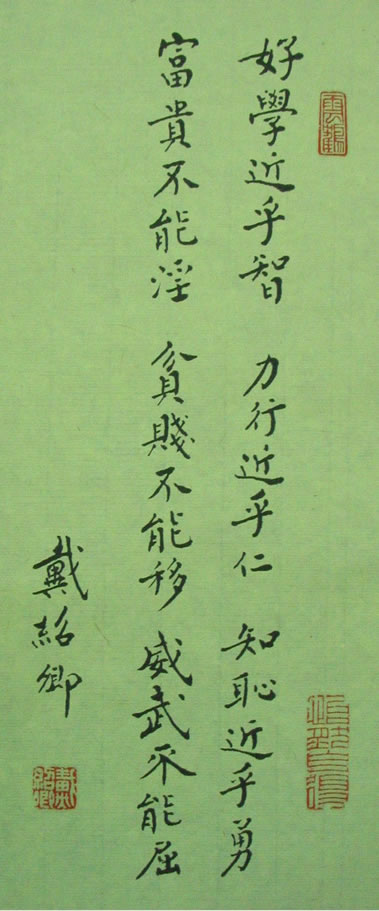 好學近乎智 力行近乎仁 知恥近乎勇
富貴不能淫 貧賤不能移 威武不能屈
戴紹卿